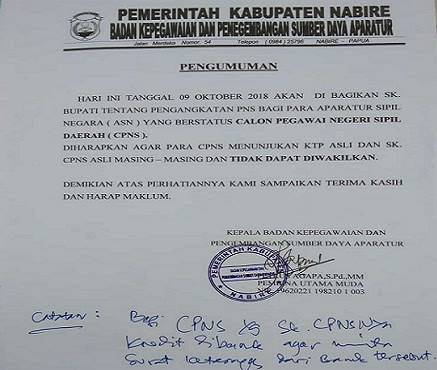 PEMERINTAH KABUPATEN NABIRE
BADAN KEPEGAWAIAN DAN PENEGEMBANGAN SUMBER DAYA APARATUR
Jalan Merdeka Nomor: 54 Telepon (0984) 25796 NABIRE - PAPUA
PENGUMUMAN
HARI INI TANGGAL 09 OKTOBER 2018 AKAN DI BAGIKAN SK.
BUPATI TENTANG PENGANGKATAN PNS BAGI PARA APARATUR SIPIL
NEGARA ( ASN ) YANG BERSTATUS CALON PEGAWAI NEGERI SIPIL
DAERAH ( CPNS ).
DIHARAPKAN AGAR PARA CPNS MENUNJUKAN KTP ASLI DAN SK.
CPNS ASLI MASING – MASING DAN TIDAK DAPAT DIWAKILKAN.
DEMIKIAN ATAS PERHATIANNYA KAMI SAMPAIKAN TERIMA KASIH
DAN HARAP MAKLUM.
KEPALA BADAN KEPEGAWAIAN DAN
PENGEMBANGAN SUMBER DAYA APARATUR
PEMERINTAH KABUPATEN
NABIRE
AGAPA, S.Pd.,MM
PEMBINA UTAMA MUDA
19620221 198210 1 003
Catatan : Bagi CPNS yg SK. CPSNNya
Kredit dibank agar minta
Surat keterangan dari Bank tersebut.